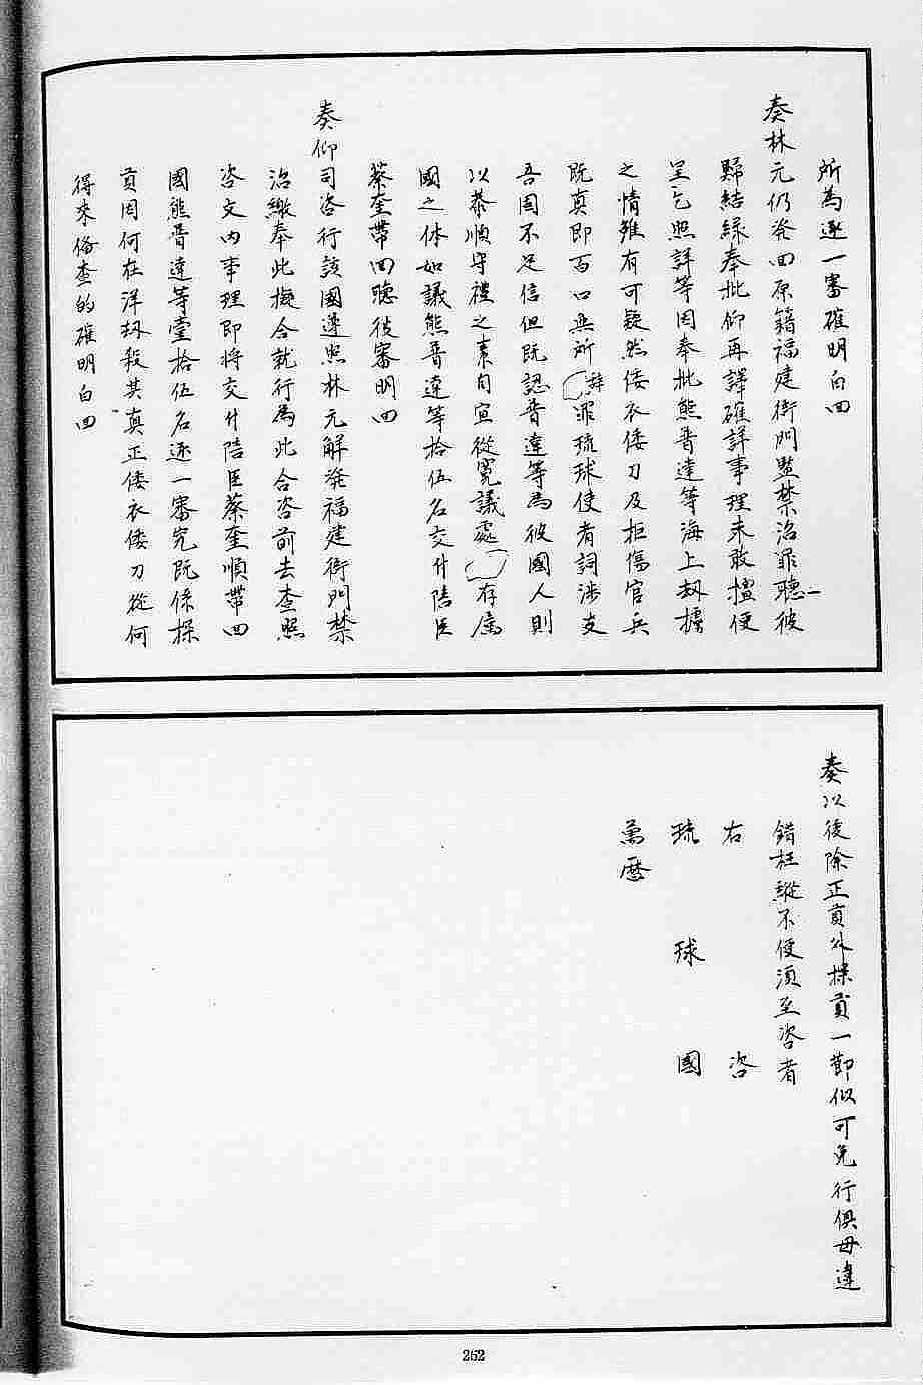 所為逐一審確明白回
奏林元仍発回原籍福建衙門監禁治罪聴彼
歸結縁奉批仰再譯確詳事理未敢擅便
呈乞照詳等因奉批熊普達等海上刼擄
之情雖有可疑然倭衣倭刀及拒傷官兵
既真即百口無所辯罪琉球使者詞渉支
吾固不足信但既認普達等為彼國人則
以恭順守禮之素自宜從寛議處存属
國之体如議熊普達等拾伍名交付陪臣
蔡奎帶回聴彼審明回
奏仰司咨行該國遵照林元解発福建衙門禁
治繳奉此擬合就行為此合咨前去査照
咨文内事理即將交付陪臣蔡奎順帶回
國熊普達等壹拾伍名逐一審究既係探
貢因何在洋刼殺其真正倭衣倭刀從何
得来俻査的確明白回
奏以後除正貢外探貢一節似可免行俱毋違
錯枉縱不便湏至咨者
右咨
琉球國
萬暦
252